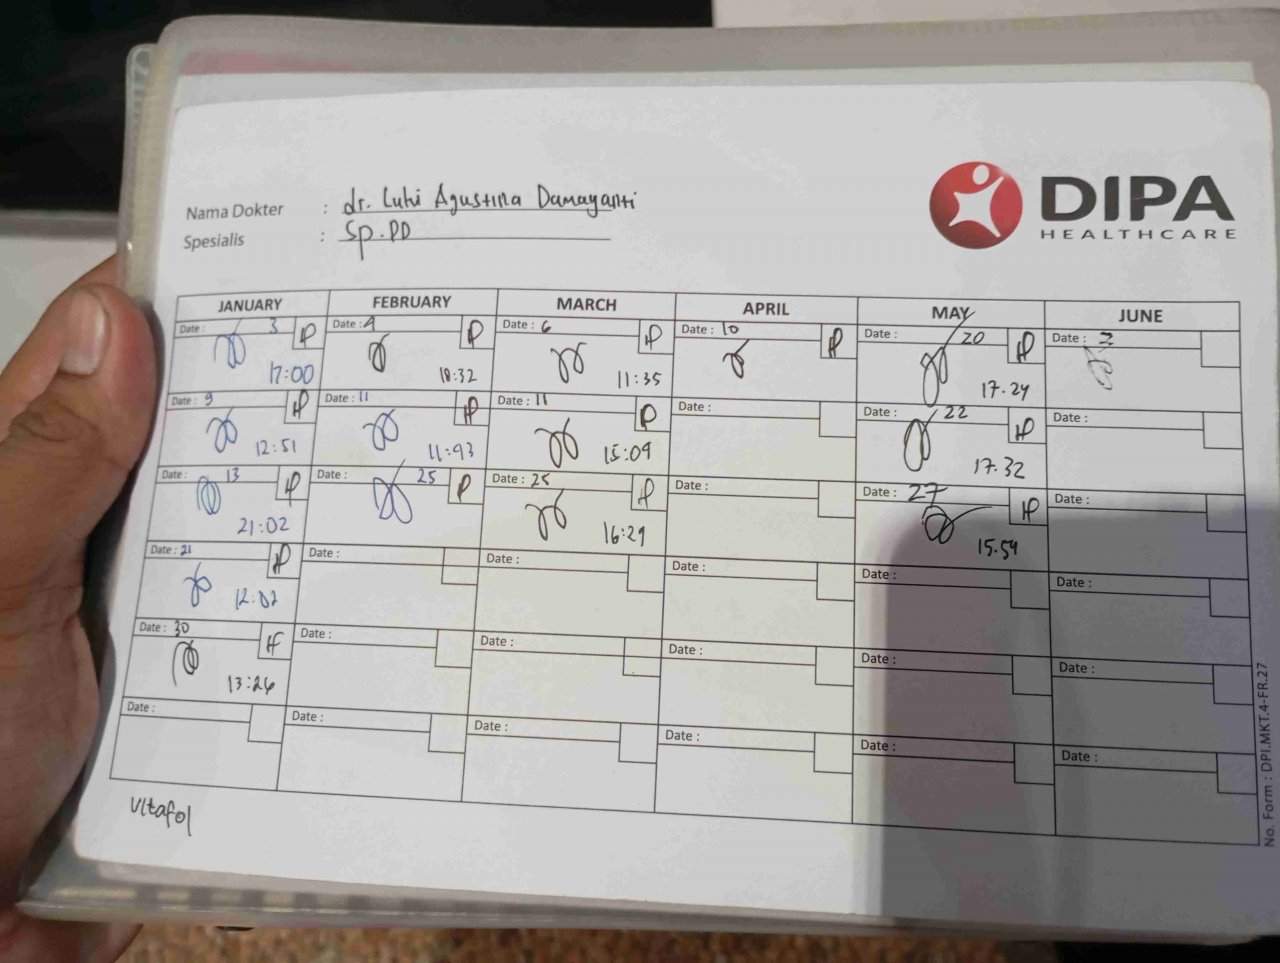 DIPA
HEALTHCARE
Nama Dokter : dr. Luhi Agustina Damayanti
Spesialis : Sp.PD
JANUARY FEBRUARY MARCH APRIL MAY JUNE
Date : 3 Date : 4 Date : 6 Date : 10 Date : 20 Date : 2
17:00 18:32 11:35 17.24
Date : 9 Date : 11 Date : 11 Date : Date : 22 Date :
12:51 11:43 15:09 17.32
Date : 13 Date : 25 Date : 25 Date : Date : 27 Date :
21:02 16:29 15.54
Date : 21 Date : Date : Date : Date : Date :
12:02
Date : 30 Date : Date : Date : Date : Date :
13:26
Date : Date : Date : Date : Date : Date :
Vitafol
No. Form : DPI.MKT.4-FR.27